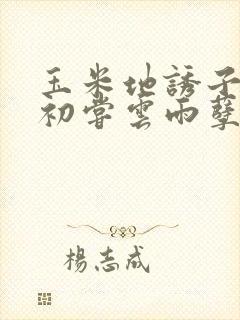 玉米地誘子
初嘗雲雨孽
楊志成